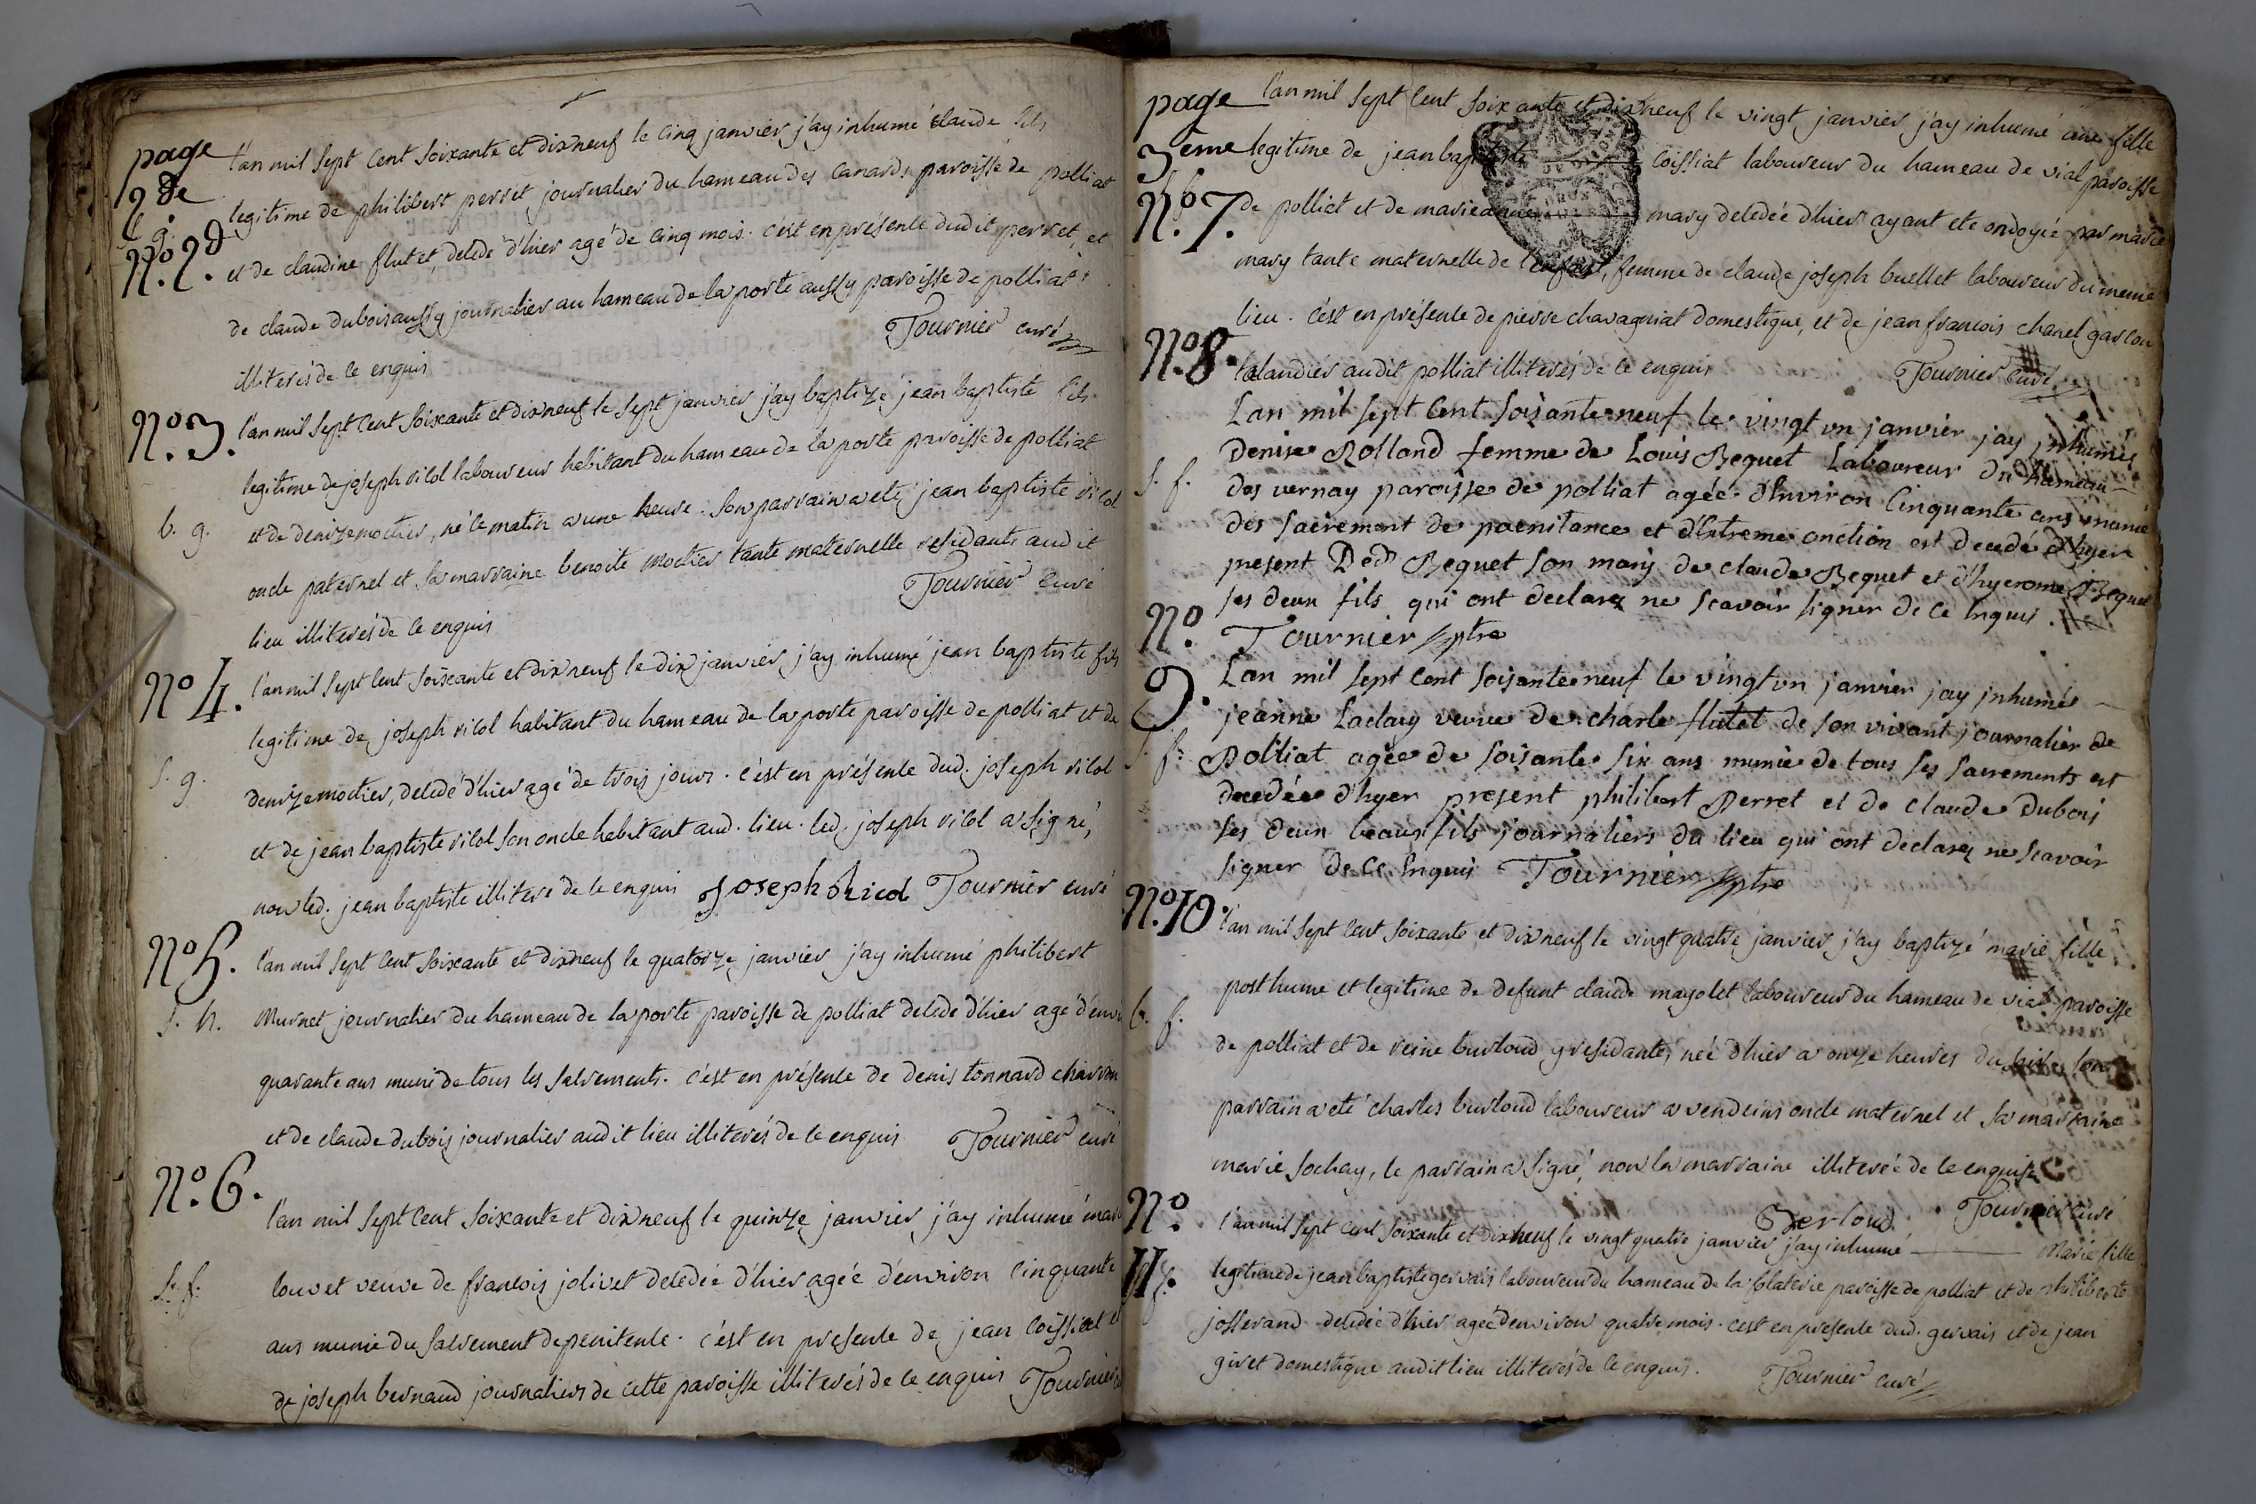 page
2de
b. g.
N.o 2d.
l'an mil sept cent soixante et dixneuf le cinq janvier j'ay inhumé claude fils
legitime de philibert perret journalier du hameau des canards paroisse de polliat
et de claudine flutet, decede d'hier agé de cinq mois. c'est en présence dudit perret, et
de claude dubois aussy journalier au hameau de la porte aussy paroisse de polliat
illiterés de ce enquis
Tournier curé
N.o 3.
b. g.
l'an mil sept cent soixante et dixneuf le sept janvier j'ay baptizé jean baptiste fils
legitime de joseph vicol laboureur habitant du hameau de la porte paroisse de polliat
et de denize moctier, né ce matin a une heure. son parrain a eté jean baptiste vicol
oncle paternel et sa marraine benoite moctier tante maternelle residants audit
lieu illiterés de ce enquis
Tournier curé
N.o 4.
s. g.
l'an mil sept cent soixante et dixneuf le dix janvier j'ay inhumé jean baptiste fils
legitime de joseph vicol habitant du hameau de la porte paroisse de polliat et de
denize moctier, decedé d'hier agé de trois jours. c'est en présence dud. joseph vicol
et de jean baptiste vicol son oncle habitant aud. lieu. led. joseph vicol a signé,
non led. jean baptiste illiteré de ce enquis Joseph Tournier curé
N.o 5.
s. h.
l'an mil sept cent soixante et dixneuf le quatorze janvier j'ay inhumé philibert
Murnet journalier du hameau de la porte paroisse de polliat decede d'hier agé d'envi
quarante ans muni de tous les sacrements. c'est en présence de denis tonnard charron
et de claude dubois journalier audit lieu illiterés de ce enquis Tournier curé
N.o 6.
s. f.
l'an mil sept cent soixante et dixneuf le quinze janvier j'ay inhumé
louvet veuve de francois jolivet decedée d'hier agée d'environ cinquante
ans munie du sacrement de penitence. c'est en presence de jean coissiat et
de joseph bernaud journaliers de cette paroisse illiterés de ce enquis Tournier
page
3eme
N.o 7.
l'an mil sept cent soixante et dixneuf le vingt janvier j'ay inhumé une fille
legitime de jean baptiste coissiat laboureur du hameau de vial paroisse
de polliat et de marieanne mary decedée d'hier ayant ete ondoyée par marie
mary tante maternelle de l'enfant, femme de claude joseph buellet laboureur du meme
lieu. c'est en présence de pierre chavagniat domestique, et de jean francois chanel garcon
talandier audit polliat illiterés de ce enquis
Tournier curé
N.o 8.
s. f.
Lan mil sept Cent soisante neuf le vingt un janvier jay jnhumés
Denise Rolland femme de Louis Bequet Laboureur du hameau
des vernay paroisse de polliat agée d'Environ Cinquante ans munie
des sacrement de poenitance et d'Extreme onction est decedé d'hyer
present Ded Bequet son mary de claude Bequet et d'hyerome Bequet
ses deux fils qui ont declarez ne scavoir signer de ce Enquis.
Tournier ptre
N.o
9.
s. f.
Lan mil sept cent soisante neuf le vingt un janvier jay jnhumés
jeanne Laclay veuve de charle flutet de son vivant journalier de
Polliat agée de soisante six ans munie de tous ses sacrements est
decedée d'hyer present philibert Perret et de claude Dubois
ses deux beaux fils journaliers du lieu qui ont declarez ne scavoir
signer de ce Enquis Tournier ptre
N.o 10.
b. f.
l'an mil sept cent soixante et dixneuf le vingt quatre janvier j'ay baptizé marie fille
posthume et legitime de defunt claude mayolet laboureur du hameau de vial paroisse
de polliat et de reine burloud y residante, née d'hier a onze heures du soir, son
parrain a eté charles burloud laboureur a vendeins oncle maternel et sa marraine
marie sochay, le parrain a signé, non la marraine illiterée de ce enquise
Berloud Tournier curé
N.o
11.
s. f.
l'an mil sept cent soixante et dixneuf le vingt quatre janvier j'ay inhumé marie fille
legitime de jean baptiste gervais laboureur du hameau de la blaterie paroisse de polliat et de philiberte
josserand decedée d'hier agée d'environ quatre mois. c'est en presence dud. gervais et de jean
givet domestique audit lieu illiterés de ce enquis. Tournier curé